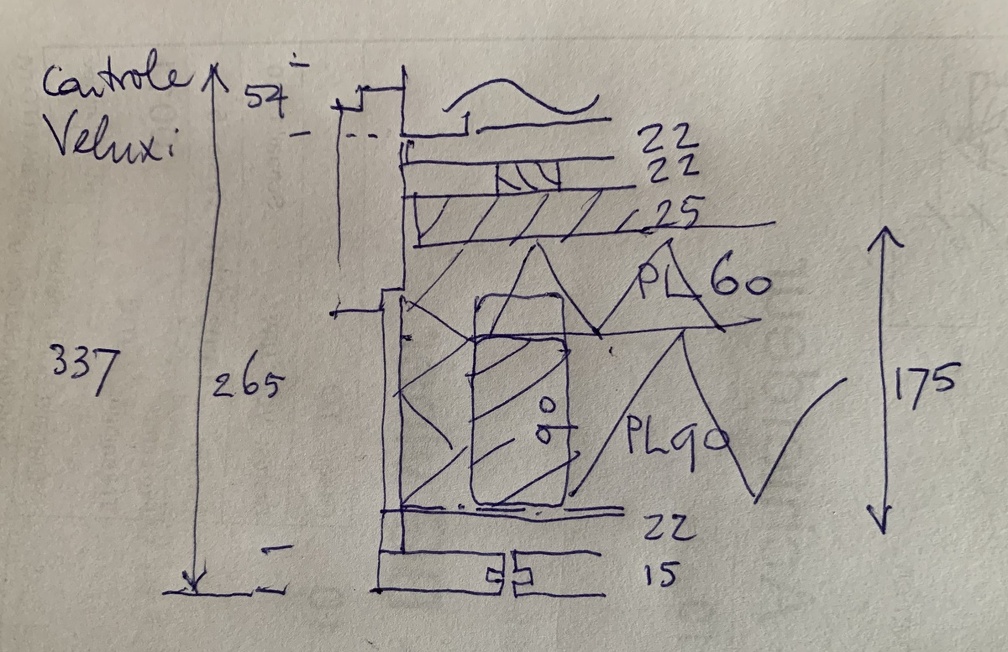 Contrôle
Velux:
54
22
22
25
PL 60
337
265
175
90
PL90
22
15